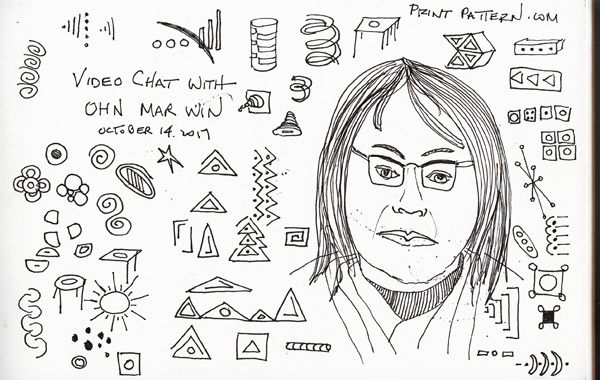 PRINT PATTERN.COM
VIDEO CHAT WITH
OHN MAR WIN
OCTOBER 14. 2017